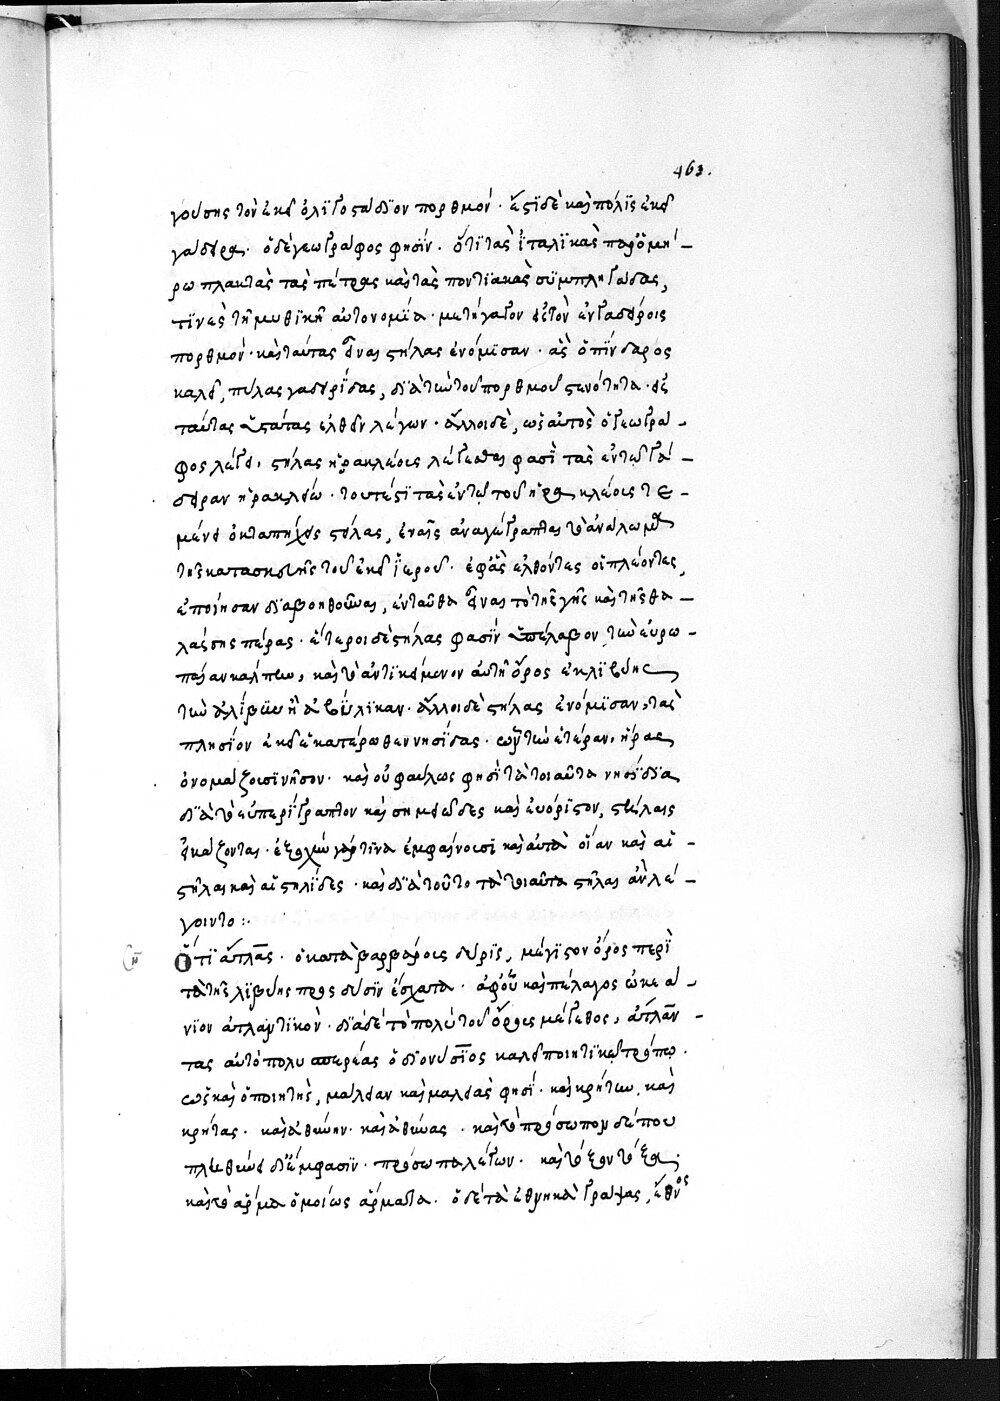 463.
γούσης τὸν ἐκεῖ ὀλιγοστάδιον πορθμόν · ἔστι δὲ καὶ πόλις ἐκεῖ
γάδειρα · ὁ δὲ γεωγράφος φησίν · ὅτι τὰς ἰταλικὰς παρ' ὁμή-
ρω πλακτὰς τὰς πέτρας καὶ τὰς ποντιακὰς συμπληγάδας,
τινὲς τῆ μυθικῆ αὐτονομία · μετήγαγον εἰς τὸν ἐν γαδείροις
πορθμὸν · καὶ ταύτας εἶναι στήλας ἐνόμισαν · ἃς ὁ πίνδαρος
καλεῖ, πύλας γαδειρίδας, διὰ τὴν τοῦ πορθμοῦ στενότητα · εἰς
ταύτας ὑστάτας ἐλθεῖν λέγων · ἄλλοι δὲ, ὡς αὐτὸς ὁ γεωγρά-
φος λέγει, στήλας ἡρακλέους λέγεσθαι φασὶ τὰς ἐν τῶ γα-
δείρων ἡρακλείω · τουτέστι τὰς ἐν τῶ τοῦ ἡρακλέους τε-
μένει ὀκταπήχεις στήλας, ἐν αἷς ἀναγέγραπται τὸ ἀνάλωμα
τῆς κατασκευῆς τοῦ ἐκεῖ ἱεροῦ · ἐφ' ἃς ἐλθόντες οἱ πλέοντες,
ἐποίησαν διαβοηθῆναι, ἐνταῦθα εἶναι τὸ τῆς γῆς καὶ τῆς θα-
λάσσης πέρας · ἕτεροι δὲ στήλας φασὶν ὑπέλαβον, τὴν εὐρω-
παίαν κάλπην, καὶ τὸ ἀντικείμενον αὐτῆ ὄρος ἐκ λιβύης
τὴν ἀλίβην ἢ ἀβύλικαν · ἄλλοι δὲ στήλας ἐνόμισαν, τὰς
πλησίον ἐκεῖ ἑκατέρωθεν νησίδας · ὧν τὴν ἑτέραν, ἥρας
ὀνομάζουσι νῆσον · καὶ οὐ φαύλως φησὶ τὰ τοιαῦτα νησίδια
διὰ τὸ εὐπερίγραπτον καὶ σημειῶδες καὶ εὐόριστον, στήλαις
εἰκάζονται · ἐξοχὴν γάρ τινα ἐμφαίνουσι καὶ αὐτὰ οἵαν καὶ αἱ
στῆλαι καὶ αἱ στηλίδες · καὶ διὰ τοῦτο τὰ τοιαῦτα στῆλαι ἂν λέ-
γοιντο :·
Ὅτι ἄτλας · ὁ κατὰ βαρβάρους δυρὶς, μέγιστον ὄρος περὶ
τὰ τῆς λιβύης πρὸς δύσιν ἔσχατα · ἀφ' οὗ καὶ πέλαγος ὠκεά-
νιον ἀτλαντικὸν · διὰ δὲ τὸ πολὺ τοῦ ὄρους μέγεθος, ἄτλαν-
τας αὐτὸ πολυμερέας ὁ διονύσιος καλεῖ ποιητικῶ τρόπω ·
ὡς καὶ ὁ ποιητὴς, μάλειαν καὶ μαλείας φησί · καὶ κρήτην, καὶ
κρήτας · καὶ ἀθήνην · καὶ ἀθήνας · καὶ τὸ πρόσωπον δέ που
πληθύνει δι' ἔμφασιν · πρόσωπα λέγων · καὶ τὸ τόξον τόξα,
καὶ τὸ ἅρμα ὁμοίως ἅρματα · ὁ δὲ τὰ ἐθνικὰ γράψας, ἔθνος